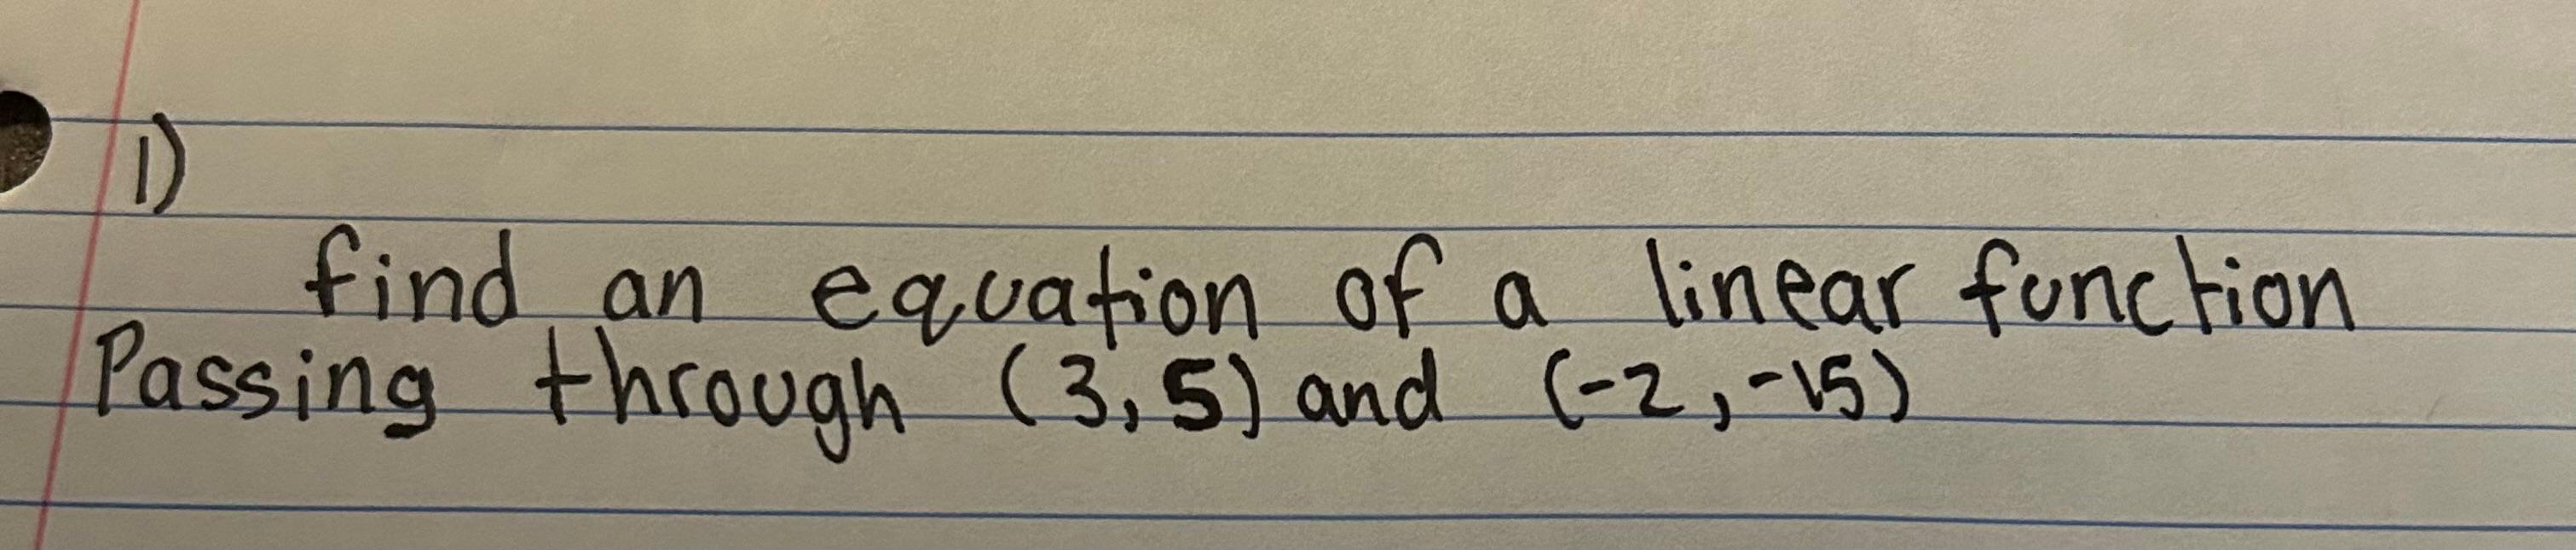 1)
find an equation of a linear function
Passing through (3,5) and (-2,-15)